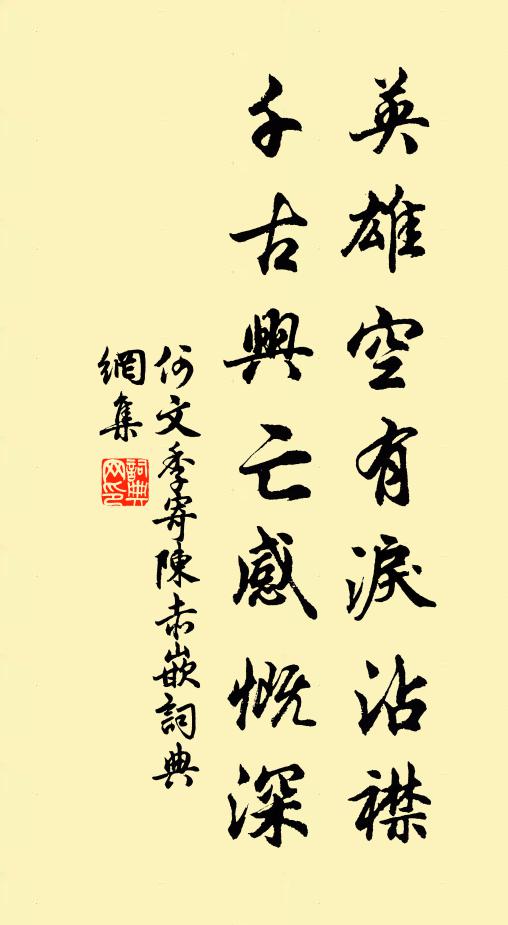 英雄空有淚沾襟
千古興亡感慨深
何文季寄陳赤嵌詞典
網集
詞典網印